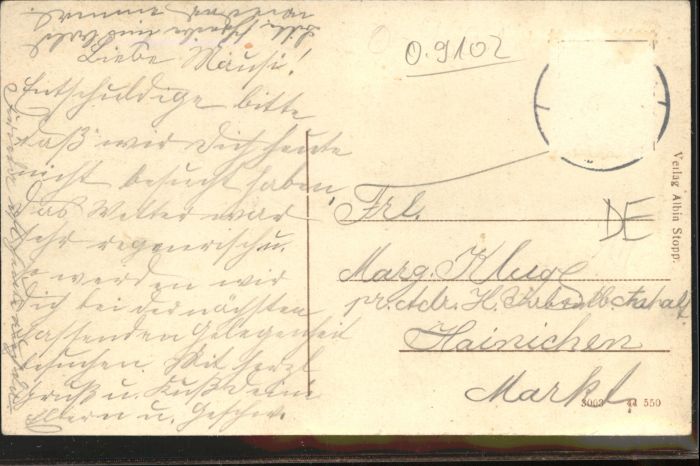 Liebe Mausi!
Entschuldige bitte
daß wir Dich heute
nicht besucht haben,
das Wetter war
sehr regnerisch u.
so werden wir
Dich bei der nächsten
passenden Gelegenheit
besuchen. Mit herzl
Gruß u. Kuß Deine
Eltern u. Geschw.
0.9102
Frl.
DE
Marg. Kluge
pr. Adr. H.
Hainichen
Markt
Verlag Albin Stopp.
3003 44 550